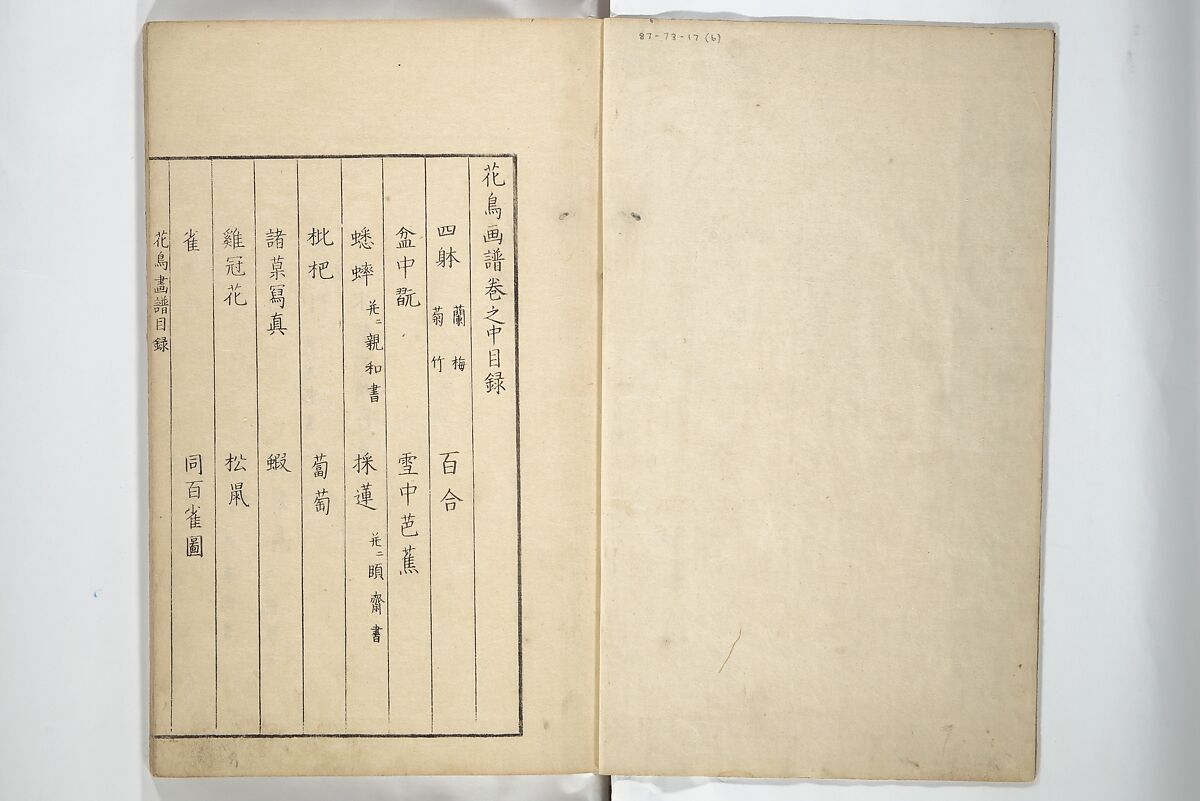 87-73-17(6)
花鳥画譜巻之中目録
四躰 蘭 梅 菊 竹 百合
盆中翫 雪中芭蕉
蟋蟀 并ニ親和書 採蓮 并ニ頤齋書
枇杷 蔔萄
諸菓寫真 蝦
雞冠花 松鼠
雀 同百雀圖
花鳥畫譜目録